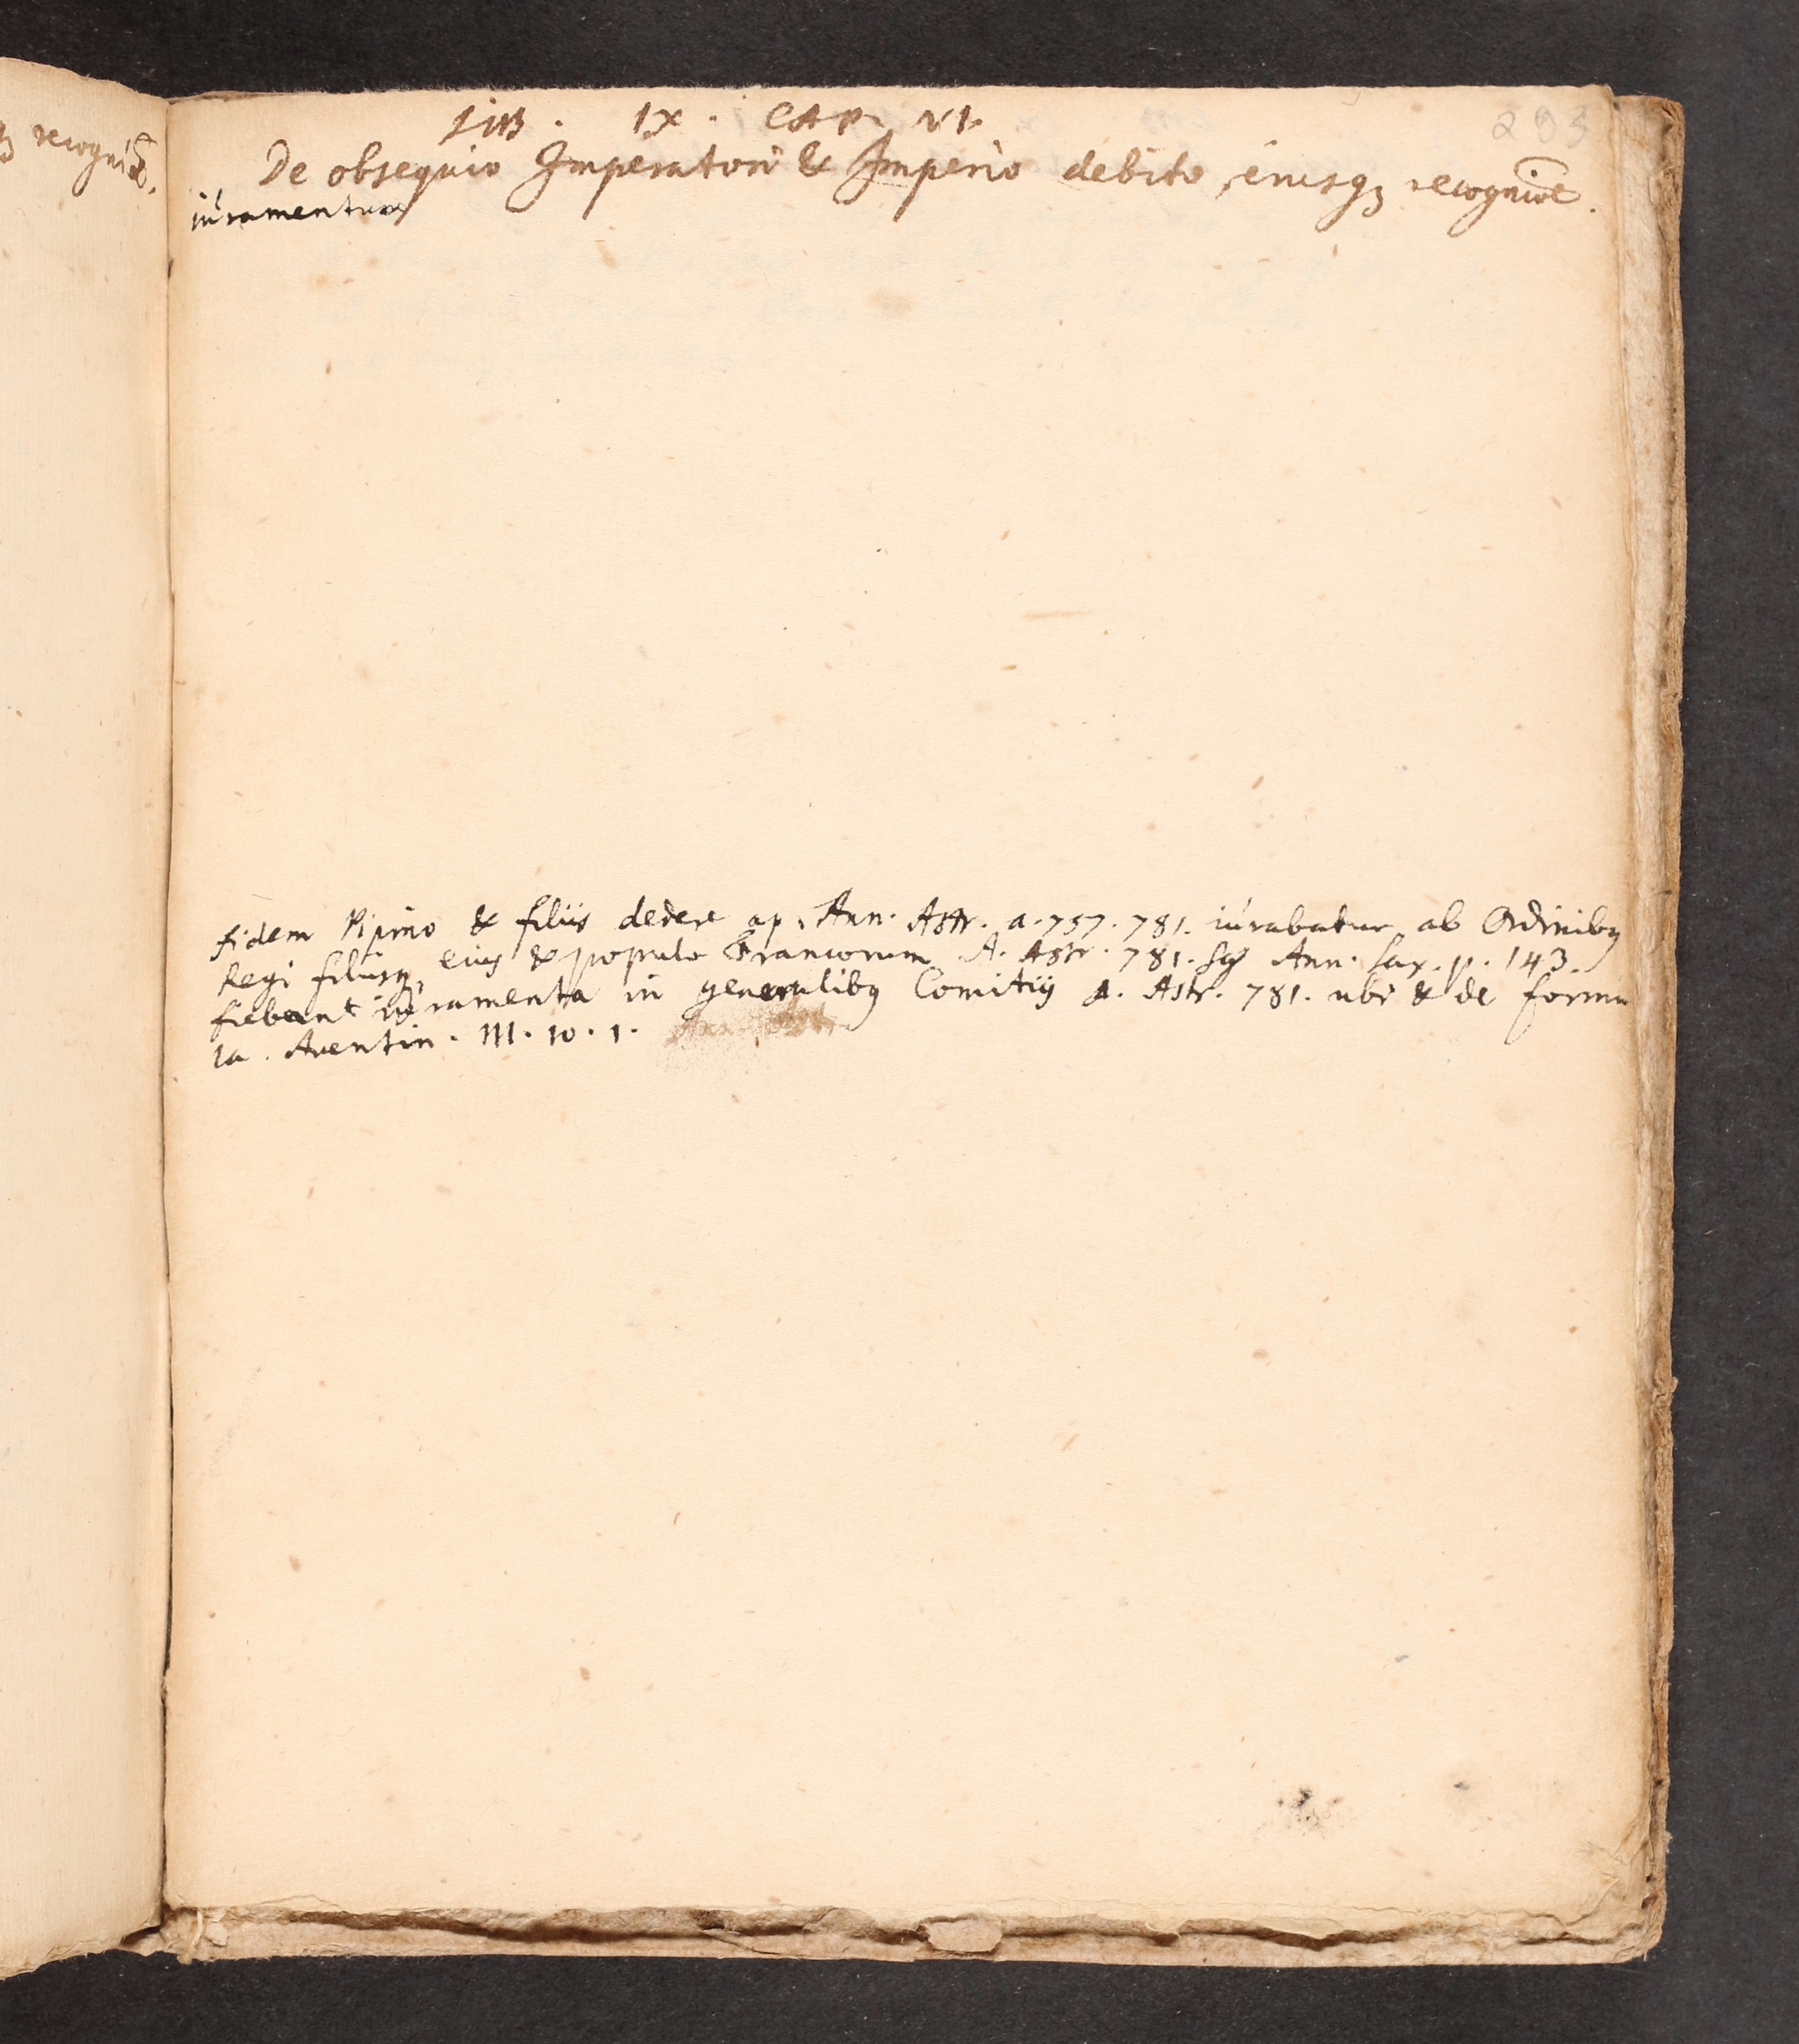 ꝗ recogniõe.
293
LIB. IX. CAP. VI.
De obsequio Imperatori & Imperio debito, eiusqꝫ recogniõe.
iúramentum
fidem Pipino & filiis dedere ap. Ann. Astr. a. 757. 781. iúrabatur ab Ordinibꝯ
Regi filiisqꝫ eius & populo Francorum A. Astr. 781. Sq Ann. Sax. p. 143.
fiebant iúramenta in generalibꝯ Comitiis A. Astr. 781. ubi & de formu
la. Aventin. III. 10. 1.